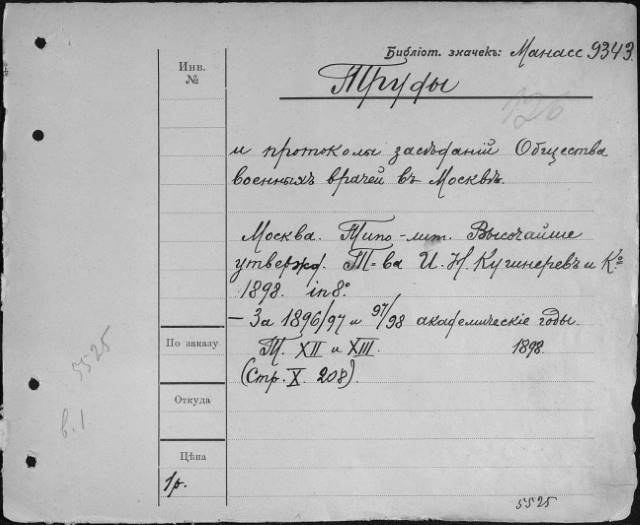 Библіот. значекъ: Манасс 9343.
Инв.
№
Труды
126
и протоколы засѣданій Общества
военныхъ врачей въ Москвѣ.
Москва. Типо-лит. Высочайше
утвержд. Т-ва И. Н. Кушнеревъ и Ко
1898. in 8°.
— За 1896/97 и 97/98 академическіе годы.
Т. XII и XIII. 1898.
(Стр. X. 208).
По заказу
5525
Откуда
в. 1
Цѣна
1 р.
5525